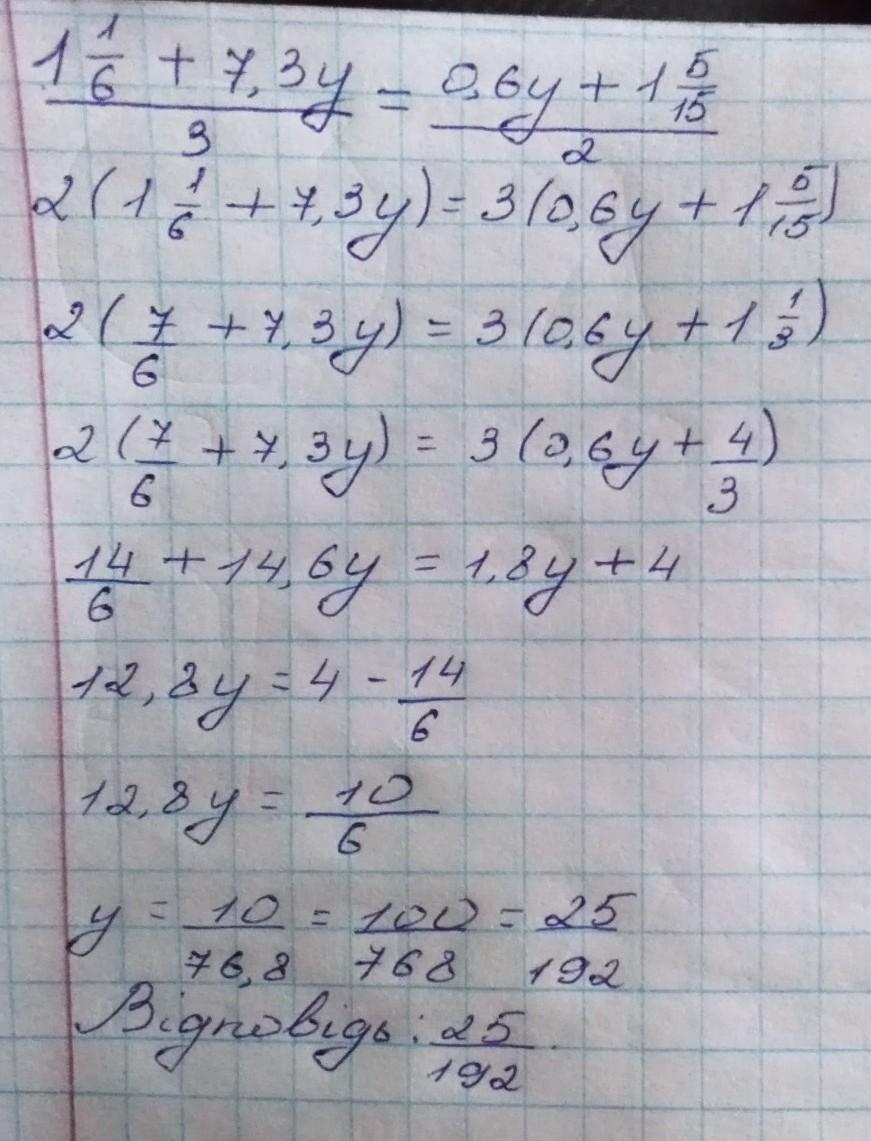 (1 1/6 + 7,3y)/3 = (0,6y + 1 5/15)/2
2(1 1/6 + 7,3y) = 3(0,6y + 1 5/15)
2(7/6 + 7,3y) = 3(0,6y + 1 1/3)
2(7/6 + 7,3y) = 3(0,6y + 4/3)
14/6 + 14,6y = 1,8y + 4
12,8y = 4 - 14/6
12,8y = 10/6
y = 10/76,8 = 100/768 = 25/192
Відповідь: 25/192.